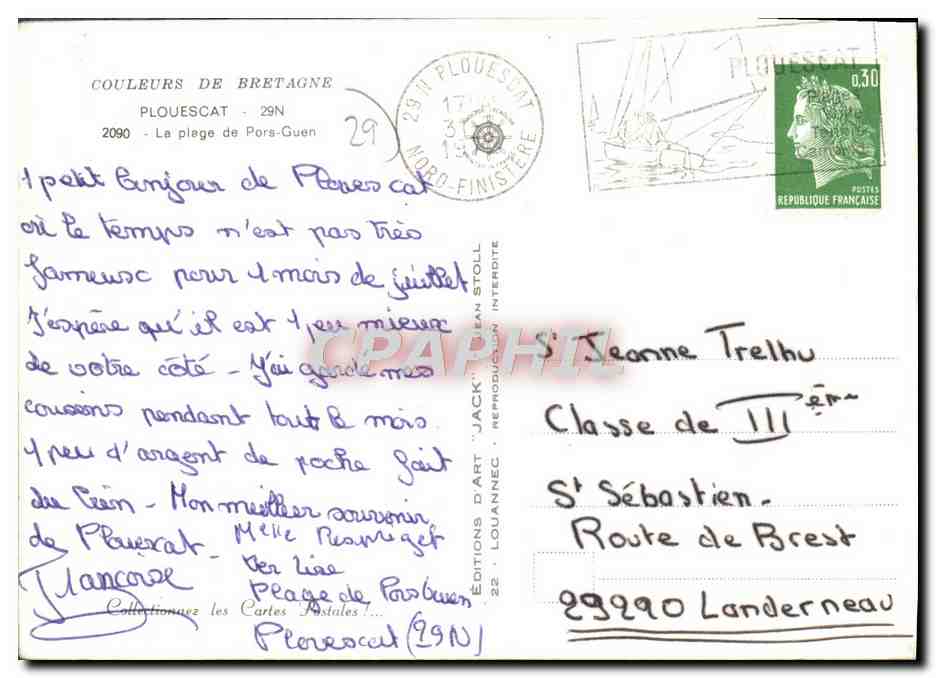 COULEURS DE BRETAGNE
PLOUESCAT - 29N
2090 - La plage de Pors-Guen
29)
29 N PLOUESCAT
17
3
19
NORD-FINISTERE
PLOUESCAT
0,30
POSTES
REPUBLIQUE FRANÇAISE
1 petit bonjour de Plouescat
où le temps n'est pas très
fameuse pour 1 mois de juillet
J'espère qu'il est 1 peu mieux
de votre côté - J'ai gardé mes
cousins pendant tout le mois.
1 peu d'argent de poche fait
du bien - Mon meilleur souvenir
de Plouescat -
Françoise
Melle
Plage de Porsguen
Plouescat (29N)
Collectionnez les Cartes Postales !...
ÉDITIONS D'ART "JACK" JEAN STOLL
22 - LOUANNEC - REPRODUCTION INTERDITE
CPAPHIL
St Jeanne Trelhu
Classe de III ème
St Sébastien -
Route de Brest
29290 Landerneau